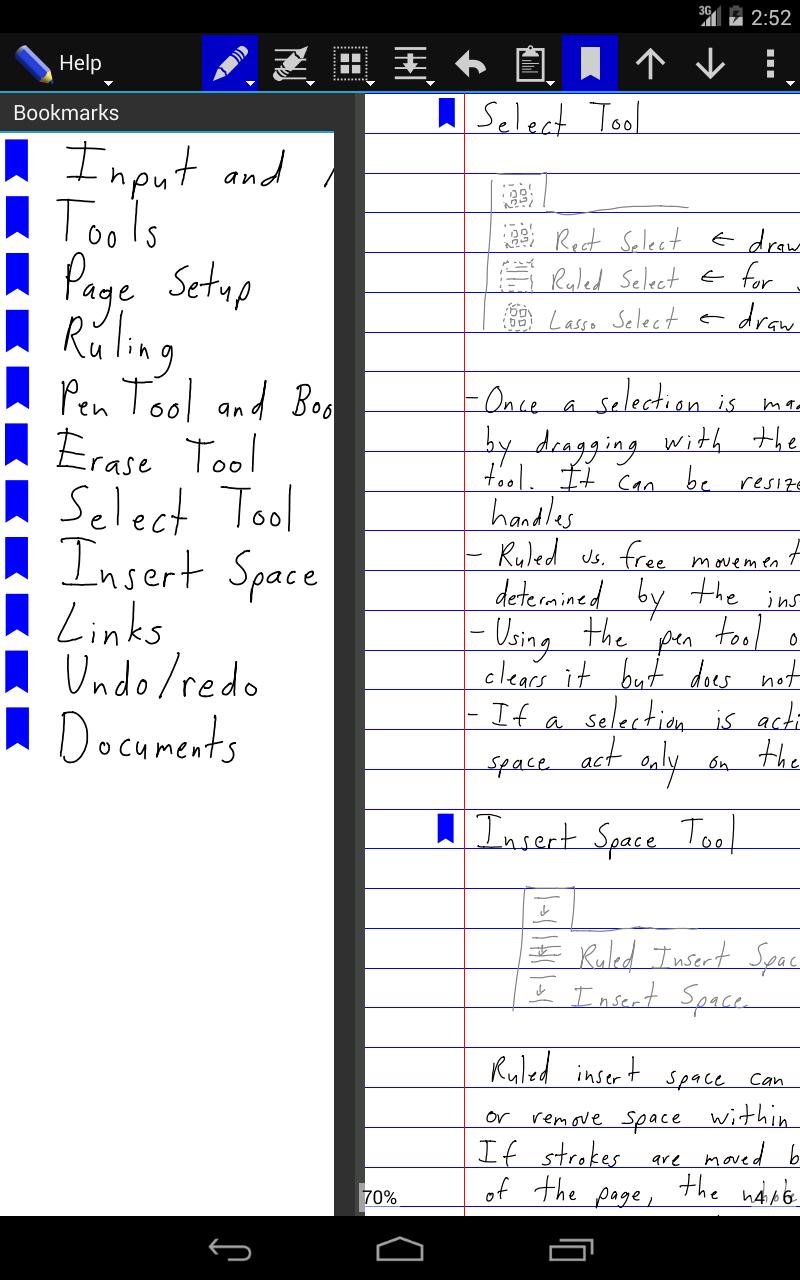 3G 2:52
Help
Bookmarks
Input and
Tools
Page Setup
Ruling
Pen Tool and Boo
Erase Tool
Select Tool
Insert Space
Links
Undo/redo
Documents
Select Tool
Rect Select ← draw
Ruled Select ← for
Lasso Select ← draw
- Once a selection is mad
by dragging with the
tool. It can be resize
handles
- Ruled vs. free movement
determined by the ins
- Using the pen tool o
clears it but does not
- If a selection is acti
space act only on the
Insert Space Tool
Ruled Insert Spac
Insert Space
Ruled insert space can
or remove space within
If strokes are moved b
of the page, the whole
70%
4/6